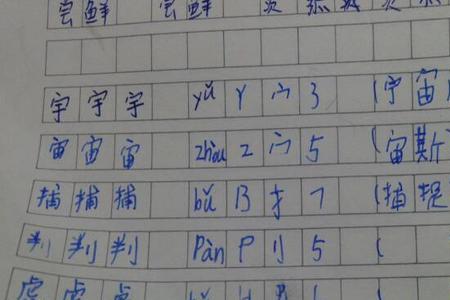 尝鲜 尝鲜
宇宇宇 yǔ Y 宀 3 (宇宙
宙宙宙 zhòu Z 宀 5 (宙斯
捕捕捕 bǔ B 扌 7 (捕捉
判判判 Pàn P 刂 5 (
虎虎虎